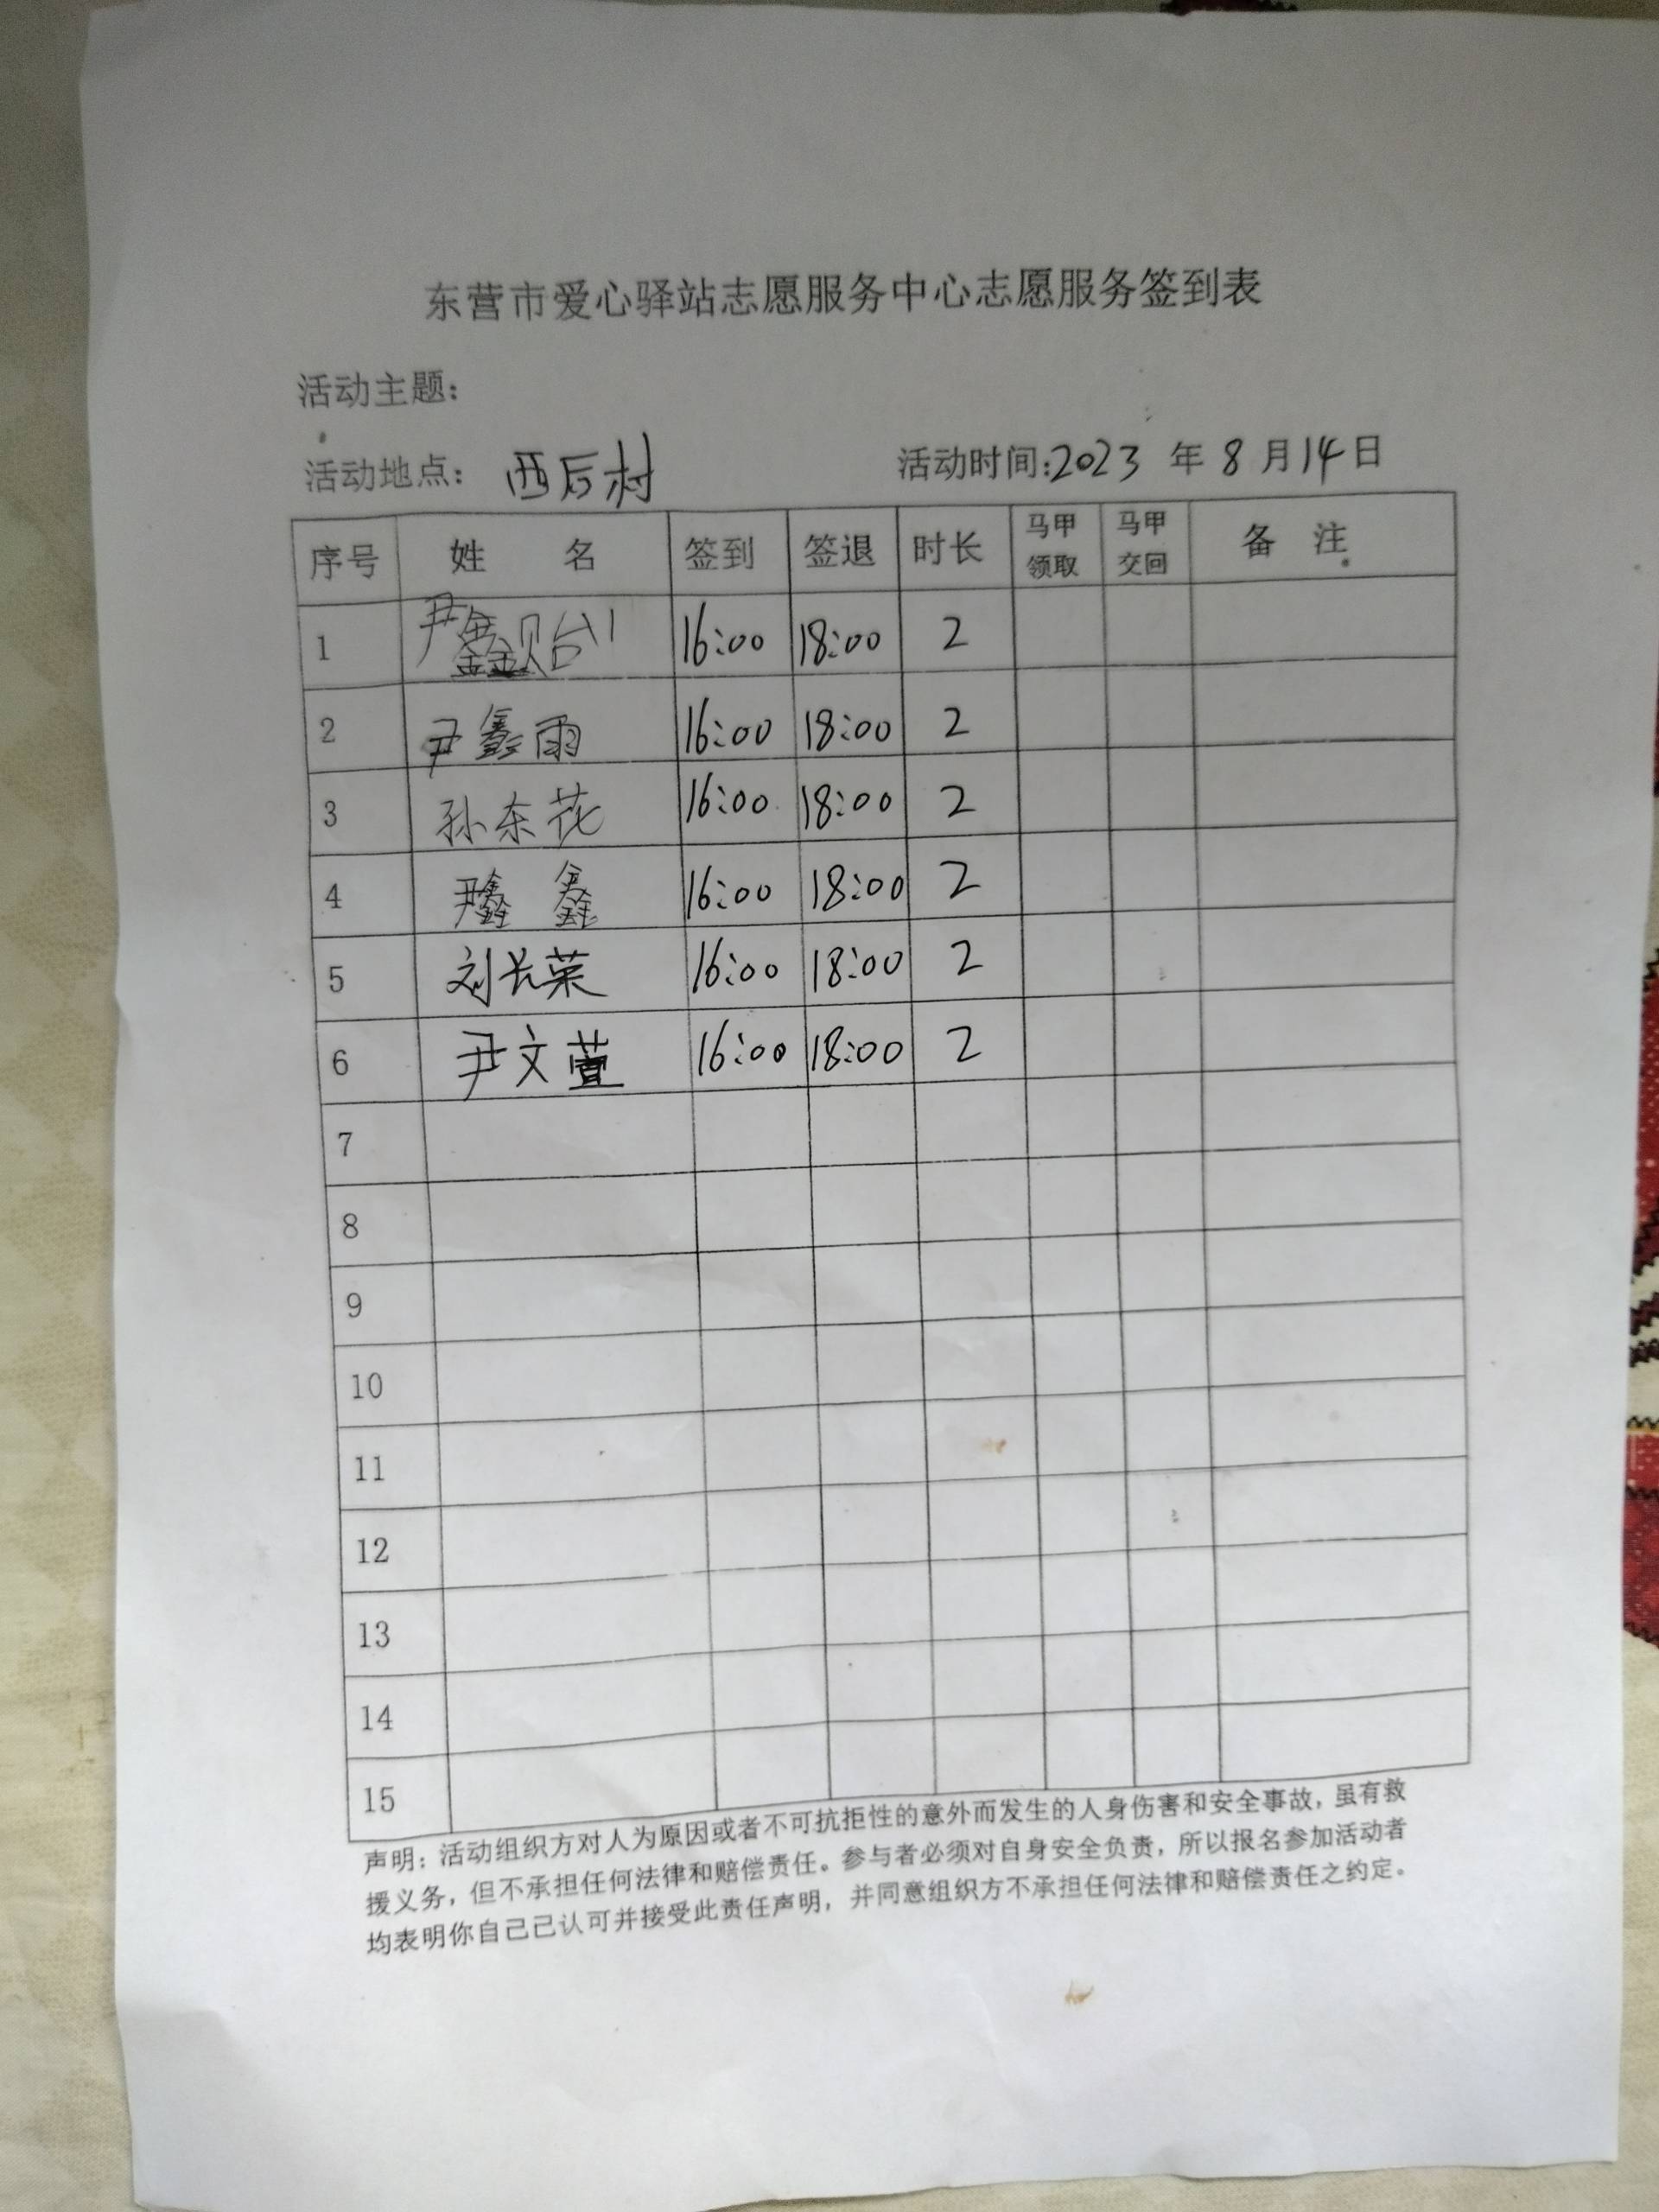 东营市爱心驿站志愿服务中心志愿服务签到表
活动主题：
活动地点： 西后村 活动时间:2023 年 8 月 14 日
序号 姓 名 签到 签退 时长 马甲领取 马甲交回 备 注
1 尹鑫贻 16:00 18:00 2
2 尹鑫雨 16:00 18:00 2
3 孙东花 16:00 18:00 2
4 尹鑫鑫 16:00 18:00 2
5 刘长荣 16:00 18:00 2
6 尹文萱 16:00 18:00 2
7
8
9
10
11
12
13
14
15
声明：活动组织方对人为原因或者不可抗拒性的意外而发生的人身伤害和安全事故，虽有救
援义务，但不承担任何法律和赔偿责任。参与者必须对自身安全负责，所以报名参加活动者
均表明你自己己认可并接受此责任声明，并同意组织方不承担任何法律和赔偿责任之约定。